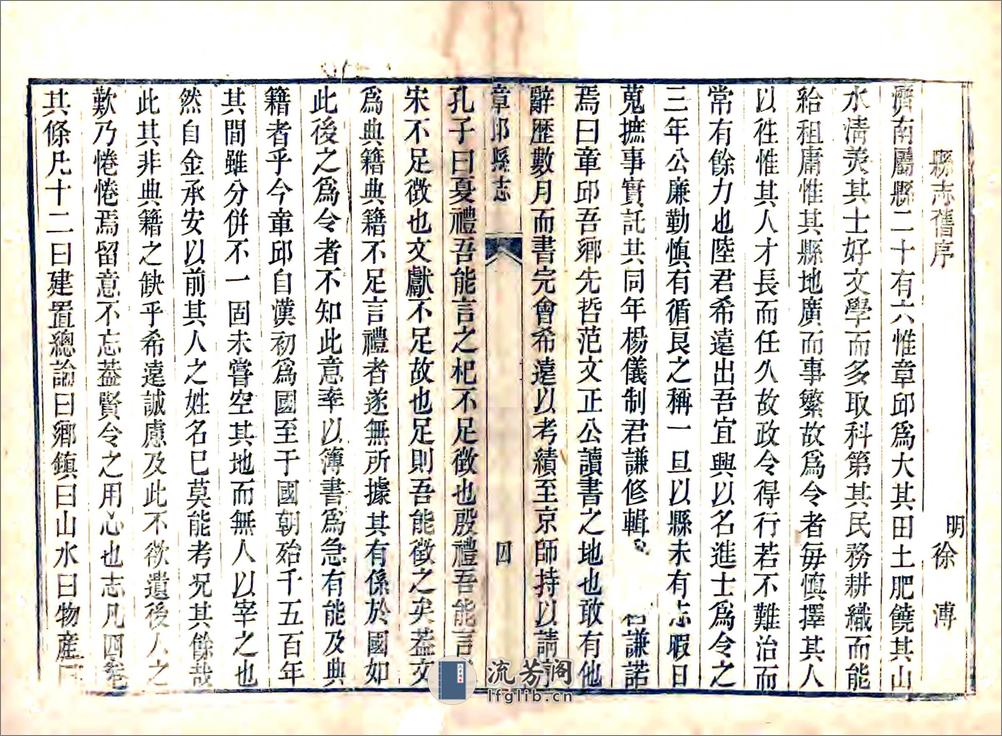 縣志舊序
明徐溥
濟南屬縣二十有六惟章邱爲大其田土肥饒其山
水清美其士好文學而多取科第其民務耕織而能
給租庸惟其縣地廣而事繁故爲令者每慎擇其人
以徃惟其人才長而任久故政令得行若不難治而
常有餘力也陸君希遠出吾宜興以名進士爲令之
三年公廉勤慎有循良之稱一旦以縣未有志暇日
蒐摭事實託其同年楊儀制君謙修輯君謙諾
焉曰章邱吾鄉先哲范文正公讀書之地也敢有他
辭歷數月而書完會希遠以考績至京師持以請
章邱縣志
四
孔子曰夏禮吾能言之杞不足徵也殷禮吾能言
宋不足徵也文獻不足故也足則吾能徵之矣葢文
爲典籍典籍不足言禮者遂無所據其有係於國如
此後之爲令者不知此意率以簿書爲急有能及典
籍者乎今章邱自漢初爲國至于國朝殆千五百年
其間雖分併不一固未嘗空其地而無人以宰之也
然自金承安以前其人之姓名已莫能考況其餘哉
此其非典籍之缺乎希遠誠慮及此不欲遺後人之
歎乃惓惓焉留意不忘葢賢令之用心也志凡四卷
其條凡十二曰建置總論曰鄉鎮曰山水曰物產
流芳閣
lfglib.cn